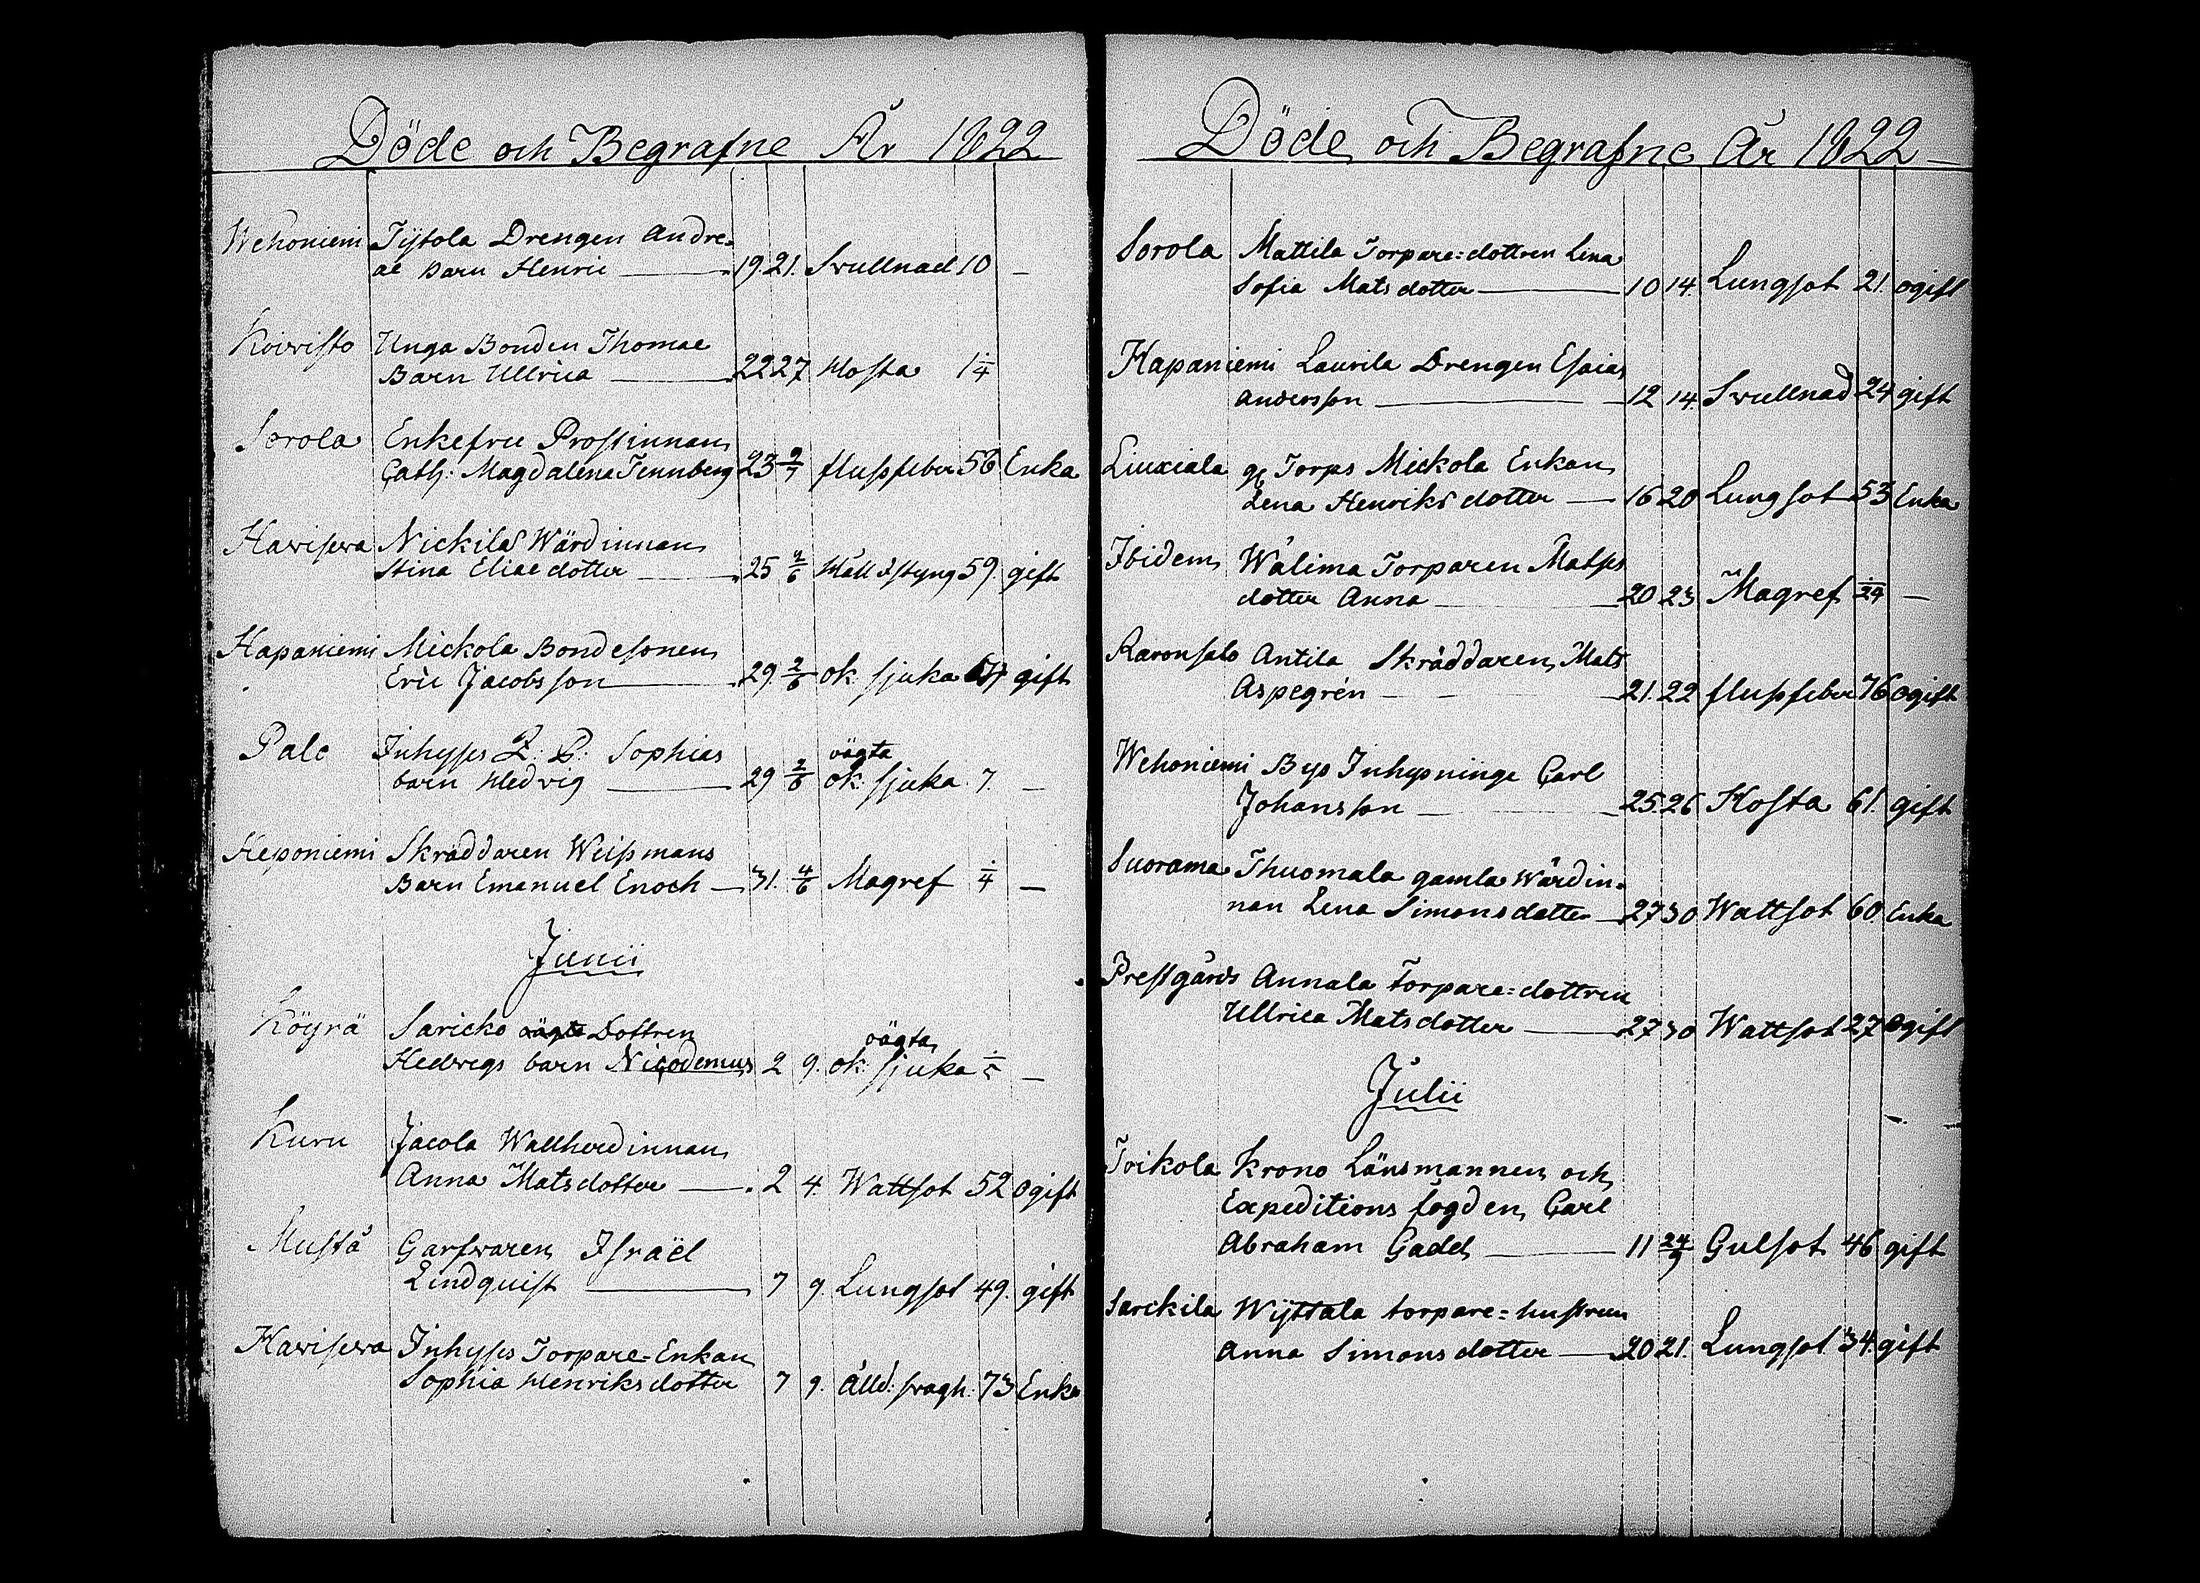 Döde och Begrafne År 1822
Wehoniemi Tÿstola Drengen Andre-
ae Barn Henric 19. 21. Svullnad 10 —
Koivisto Unga Bonden Thomae
Barn Ullrica 22 27 Hosta 1 1/4
Sorola Enkefru Prostinnan
Cath: Magdalena Tennberg 23 2/7 flussfeber 56 Enka
Havisera Nickilä Wärdinnan
Stina Eliaedotter 25 2/6 Håll o styng 59. gift
Hapaniemi Mickola Bondesonen
Eric Jacobsson 29. 2/6 ok sjuka gift
Pale Inhyses Sophias
oägta
barn Hedvig 29 2/6 ok. sjuka 7. —
Heponiemi Skräddaren Weissmans
Barn Emanuel Enoch 31. 4/6 Magref 1/4 —
Junii
Köyrä Saricko oägta Dottren
oägta
Hedvigs barn Nicodemus 2 9. ok. sjuka —
Kuru Jacola Wallherdinnan
Anna Matsdotter 2 4. Wattsot 52 ogift
Musta Garfvaren Israël
Lindquist 7 9. Lungsot 49. gift
Havisera Inhyses Torpare-Enkan
Sophia Henriksdotter 7 9. Ålld: svagh. 73 Enka
Döde och Begrafne År 1822
Sorola Mattila Torpare=dottren Lena
Sofia Matsdotter 10 14. Lungsot 21. ogift
Hapaniemi Laurila Drengen Esaias
Andersson 12 14. Svullnad 24 gift
Liuxiala Torps Mickola Enkan
Lena Henriksdotter 16 20 Lungsot 53 Enka
Ibidem Wälima Torparen Matses
dotter Anna 20 23 Magref 1/24 —
Raronsalo Antila Skräddaren Mats
Aspegrén 21. 22 flussfeber 76 ogift
Wehoniemi Bys Inhysninge Carl
Johansson 25. 26 Hosta 61. gift
Suorama Thuomala gamla Wärdin-
nan Lena Simonsdotter 27 30 Wattsot 60. Enka
Prestgårds Annala Torpare=dottren
Ullrica Matsdotter 27 30 Wattsot 27 ogift
Julii
Toikola Krono Länsmannen och
Expeditions fogden Carl
Abraham Gadd 11 24/9 Gulsot 46 gift
Sarckila Wÿttälä torpare=hustrun
Anna Simonsdotter 20 21. Lungsot 34. gift